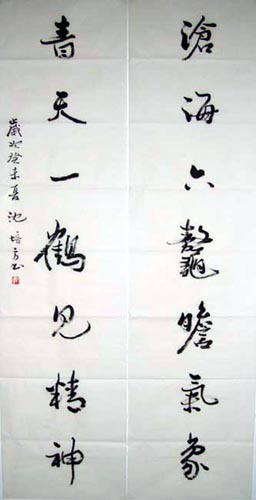 滄海六鼇瞻氣象
青天一鶴見精神
歲次癸未夏池培方书